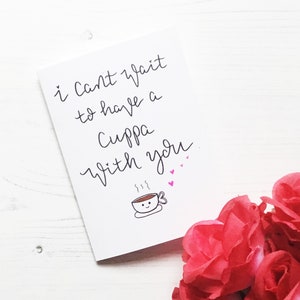 i cant wait
to have a
cuppa
with you